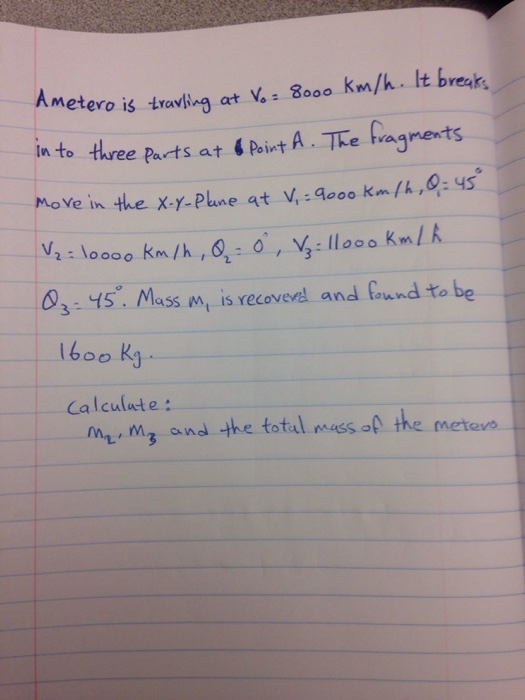 A metero is travling at V₀ = 8000 Km/h. It breaks
in to three parts at Point A. The fragments
move in the X-Y-Plane at V₁ = 9000 Km/h, θ₁ = 45°
V₂ = 10000 Km/h, θ₂ = 0°, V₃ = 11000 Km/h
θ₃ = 45°. Mass m₁ is recovered and found to be
1600 Kg.
Calculate:
m₂, m₃ and the total mass of the metero